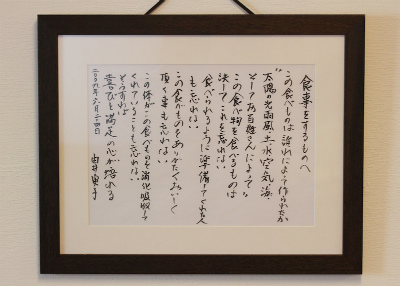 食事をするものへ
この食べものは誰れによって作られたか
太陽の光雨風土、水空気海、
そしてお百姓さんによって
この食べ物を食べるものは
決してこれを忘れない
食べられるように準備してくれた人
も忘れない
この食べものをありがたくおいしく
頂く事も忘れない
この体がこの食べものを消化吸収して
くれていることも忘れない
そうすれば
喜びと満足の心が培れる
二〇〇九年六月二十四日
由井寅子